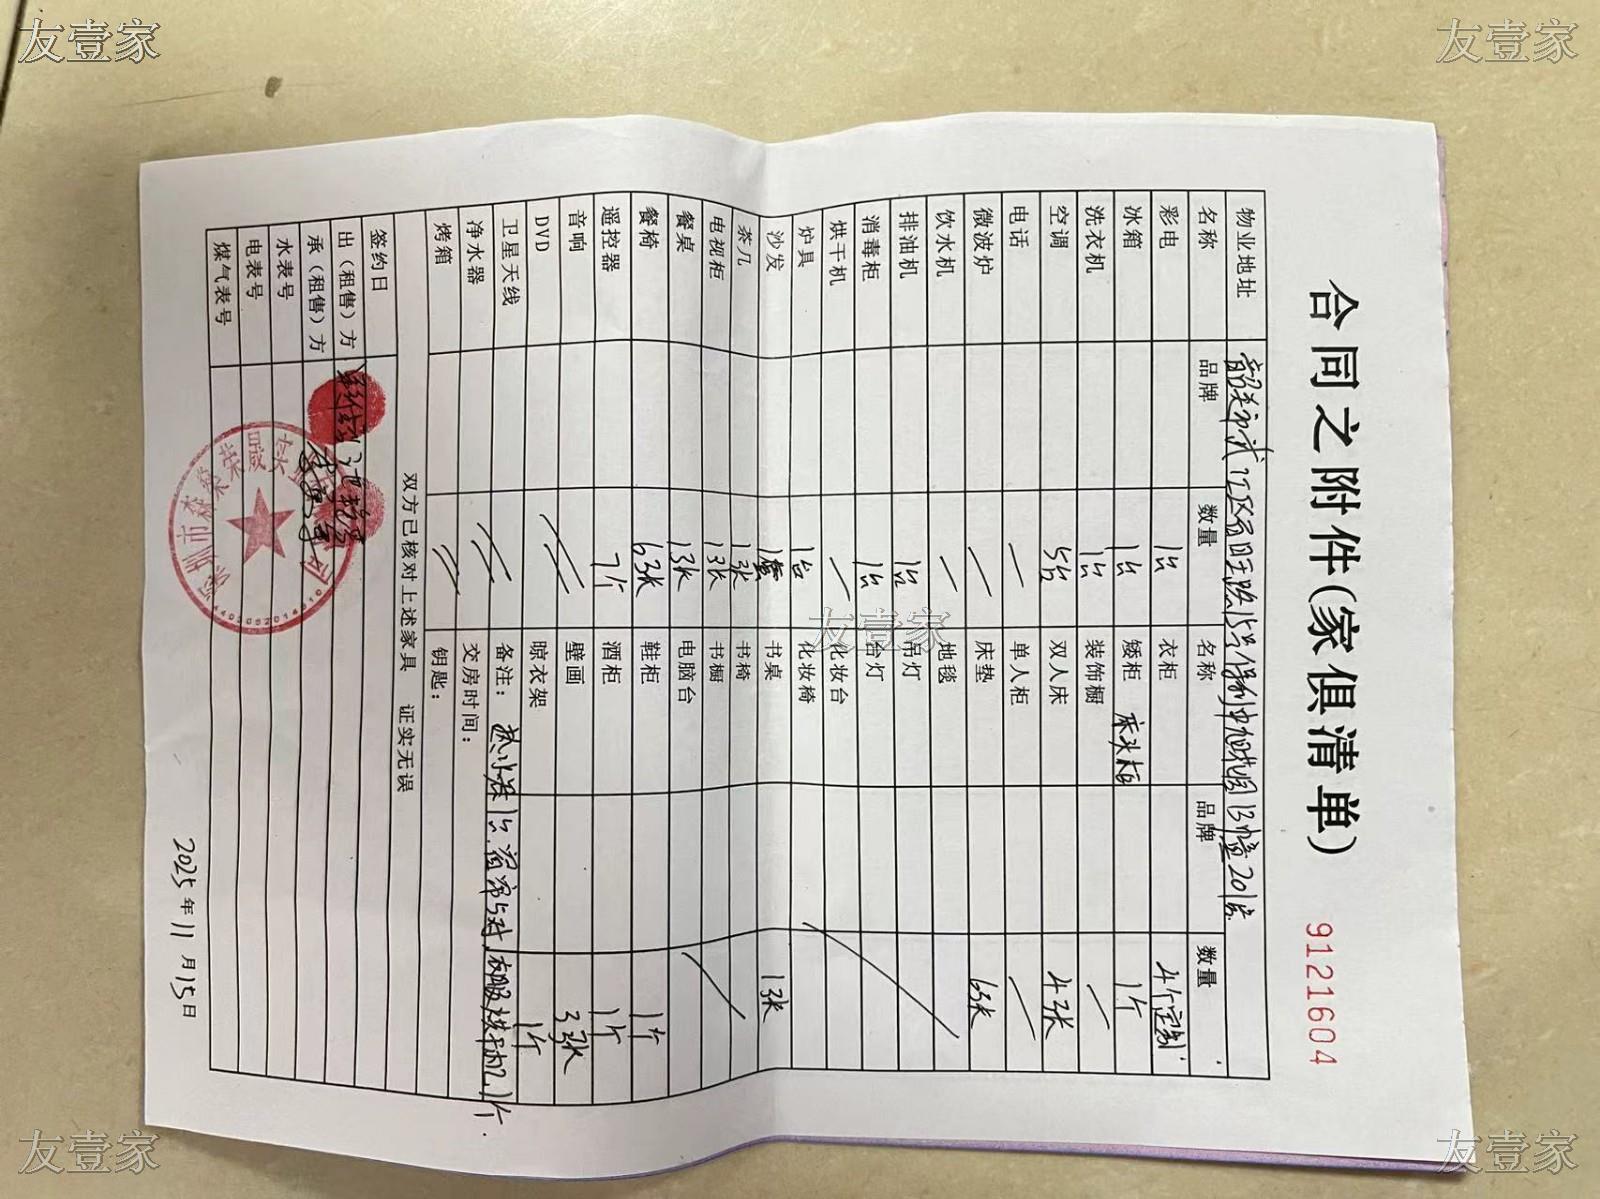 友壹家
友壹家
合同之附件(家俱清单)
9121604
物业地址 韶关市武江区百旺路15号保利中枢花园13幢201房
名称 品牌 数量 名称 品牌 数量
彩电 1台 衣柜 4个定制
冰箱 1台 矮柜 床头柜 1个
洗衣机 1台 装饰橱 —
空调 5台 双人床 4张
电话 — 单人柜 —
微波炉 — 床垫 6张
饮水机 — 地毯
排油机 1台 吊灯
消毒柜 1台 台灯
烘干机 — 化妆台
炉具 1台 化妆椅
沙发 1套 书桌 1张
茶几 1张 书椅
电视柜 1张 书橱
餐桌 1张 电脑台
餐椅 6张 鞋柜 1个
遥控器 7个 酒柜 1个
音响 壁画 3张
DVD 晾衣架 1个
卫星天线 备注: 热水器1台.窗帘5对,衣服烘干机.1个.
净水器 交房时间:
烤箱 钥匙:
双方已核对上述家具 证实无误
签约日
出(租售)方
承(租售)方
水表号
电表号
煤气表号
2025年11月15日
友壹家
友壹家
友壹家